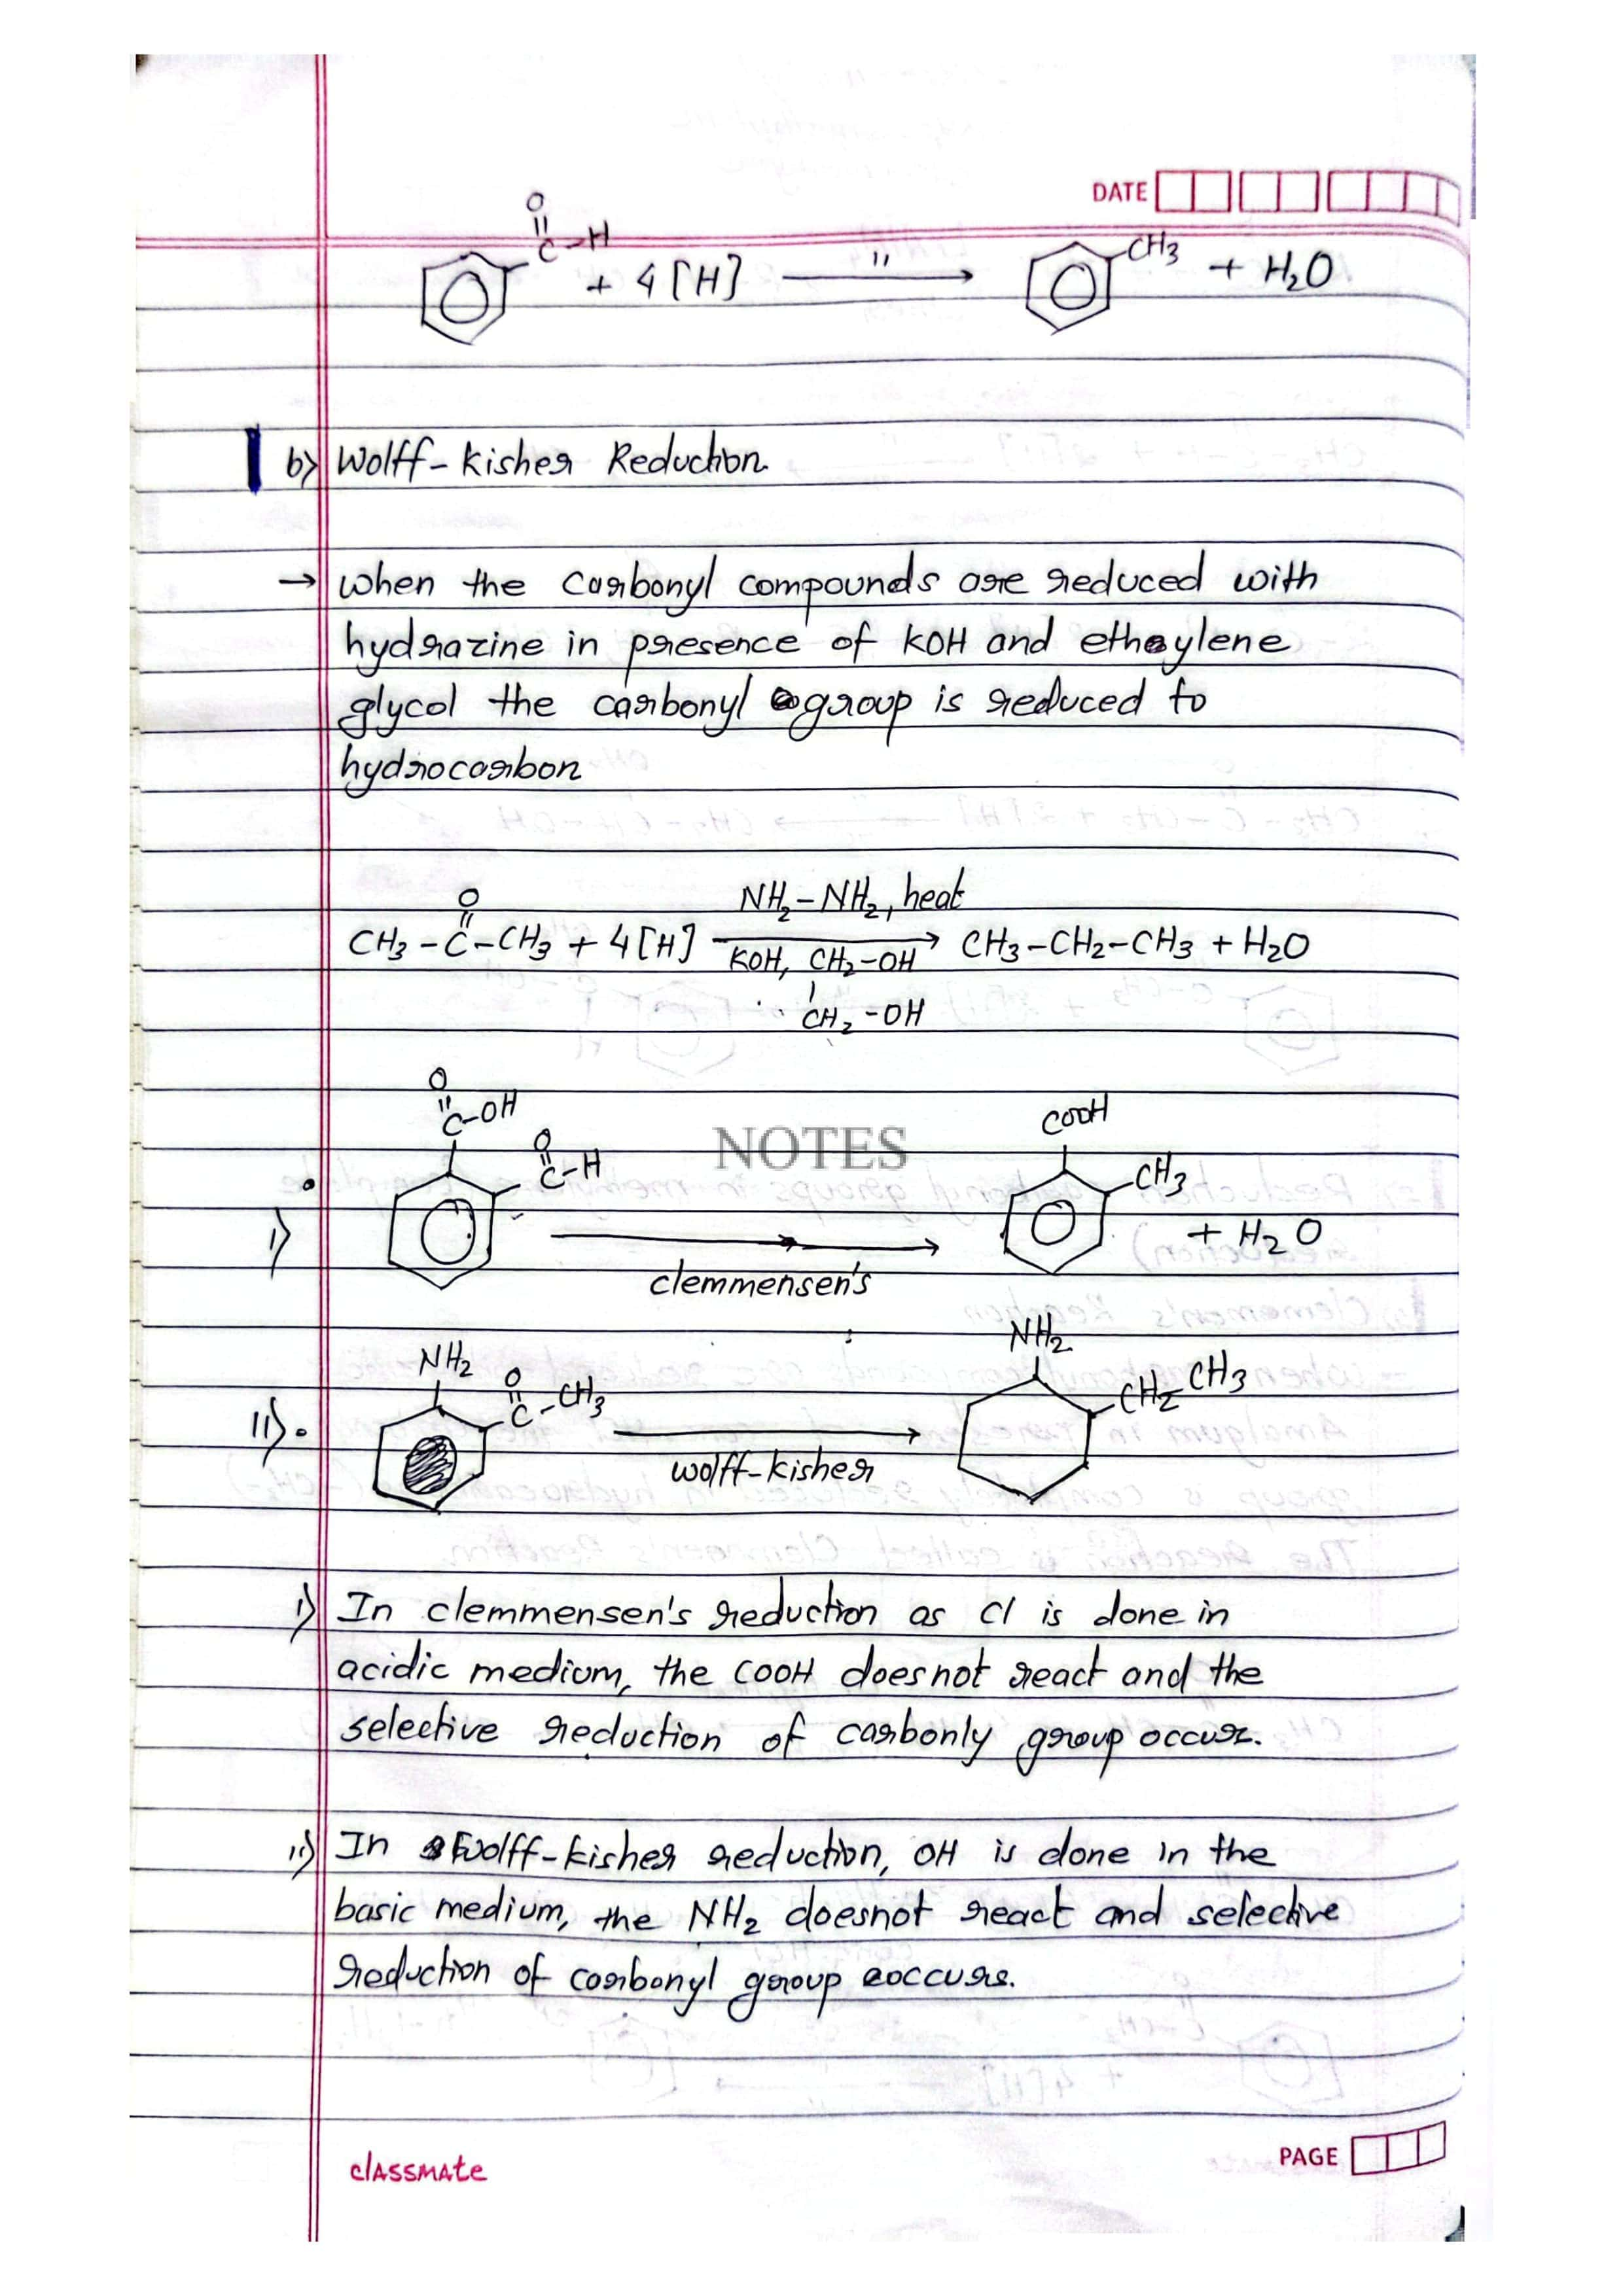 DATE
O
||
C-H
+ 4[H] —"→ CH3 + H2O
b) Wolff-Kisher Reduction.
→ When the carbonyl compounds are reduced with
hydrazine in presence of KOH and ethylene
glycol the carbonyl group is reduced to
hydrocarbon
O
||
NH2-NH2, heat
CH3-C-CH3 + 4[H] → CH3-CH2-CH3 + H2O
KOH, CH2-OH
|
CH2-OH
O
||
C-OH
COOH
NOTES
O
||
C-H
CH3
i)
+ H2O
clemmensen's
NH2
NH2
O
||
C-CH3
CH2-CH3
ii).
wolff-kisher
i) In clemmensen's reduction as Cl is done in
acidic medium, the COOH doesnot react and the
selective reduction of carbonly group occur.
ii) In Wolff-kisher reduction, OH is done in the
basic medium, the NH2 doesnot react and selective
reduction of carbonyl group occurs.
classmate
PAGE